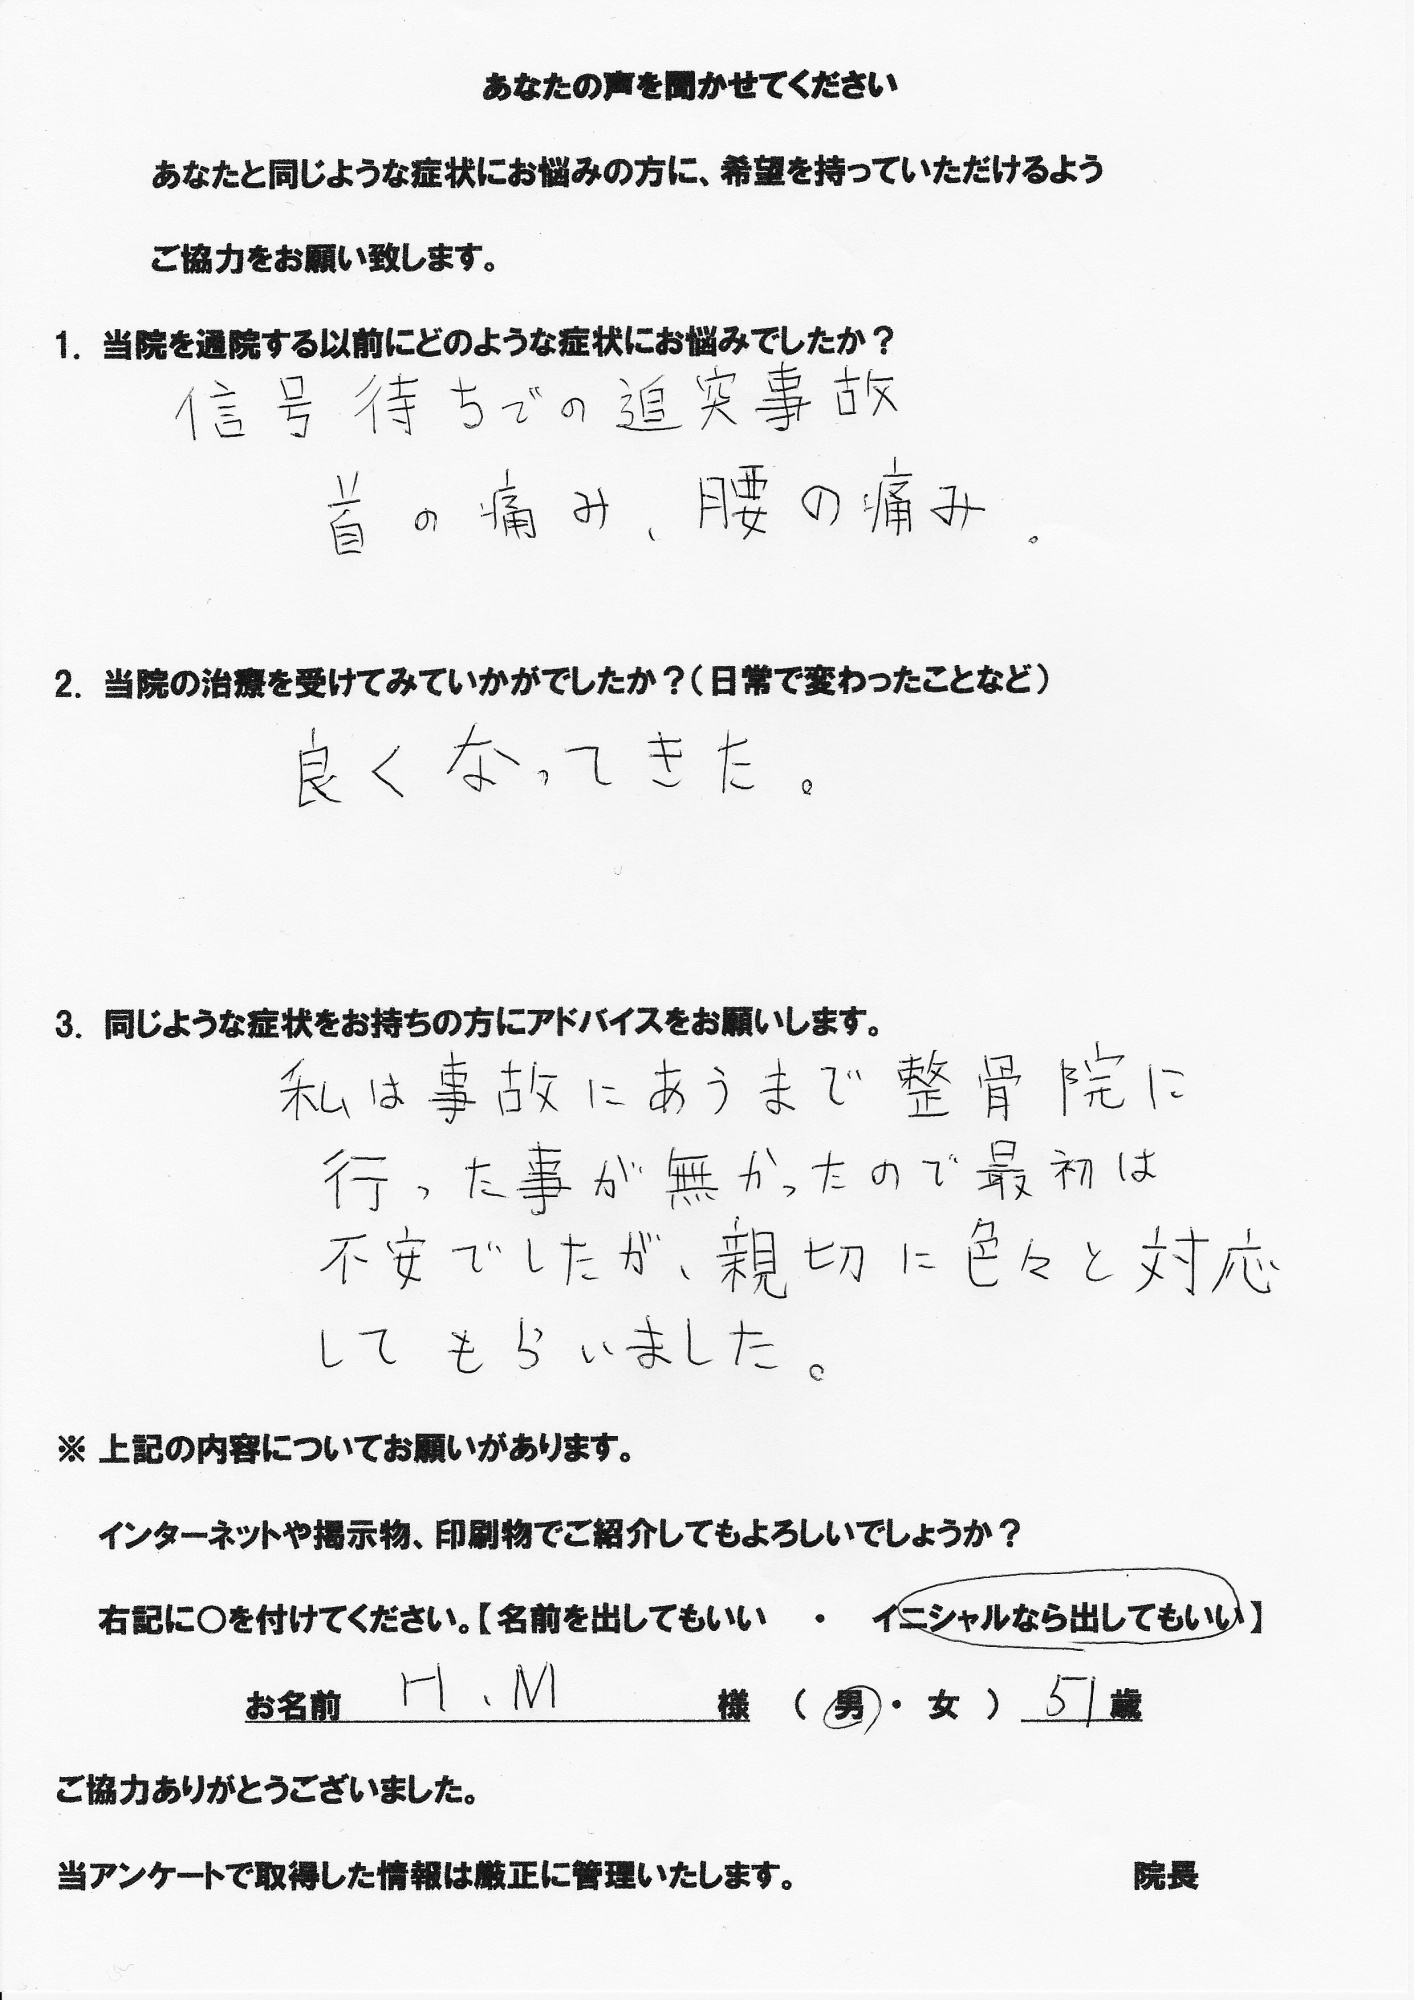 あなたの声を聞かせてください
あなたと同じような症状にお悩みの方に、希望を持っていただけるよう
ご協力をお願い致します。
1. 当院を通院する以前にどのような症状にお悩みでしたか？
信号待ちでの追突事故
首の痛み、腰の痛み。
2. 当院の治療を受けてみていかがでしたか？（日常で変わったことなど）
良くなってきた。
3. 同じような症状をお持ちの方にアドバイスをお願いします。
私は事故にあうまで整骨院に
行った事が無かったので最初は
不安でしたが、親切に色々と対応
してもらいました。
※ 上記の内容についてお願いがあります。
インターネットや掲示物、印刷物でご紹介してもよろしいでしょうか？
右記に〇を付けてください。【 名前を出してもいい ・ イニシャルなら出してもいい 】
お名前 H、M 様 （ 男 ・ 女 ） 51 歳
ご協力ありがとうございました。
当アンケートで取得した情報は厳正に管理いたします。 院長